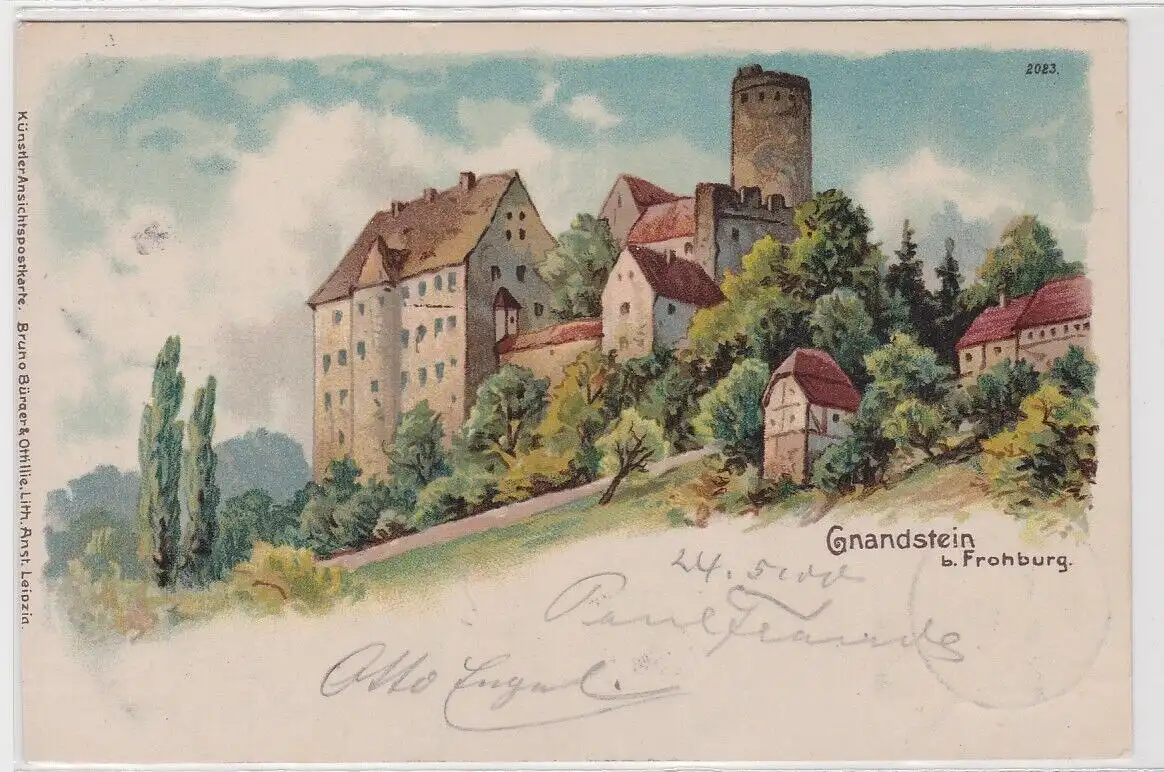 2023.
KünstlerAnsichtspostkarte. Bruno Bürger & Ottillie, Lith. Anst. Leipzig.
Gnandstein
b. Frohburg.
24. 5 00
Paul
Otto Engel.